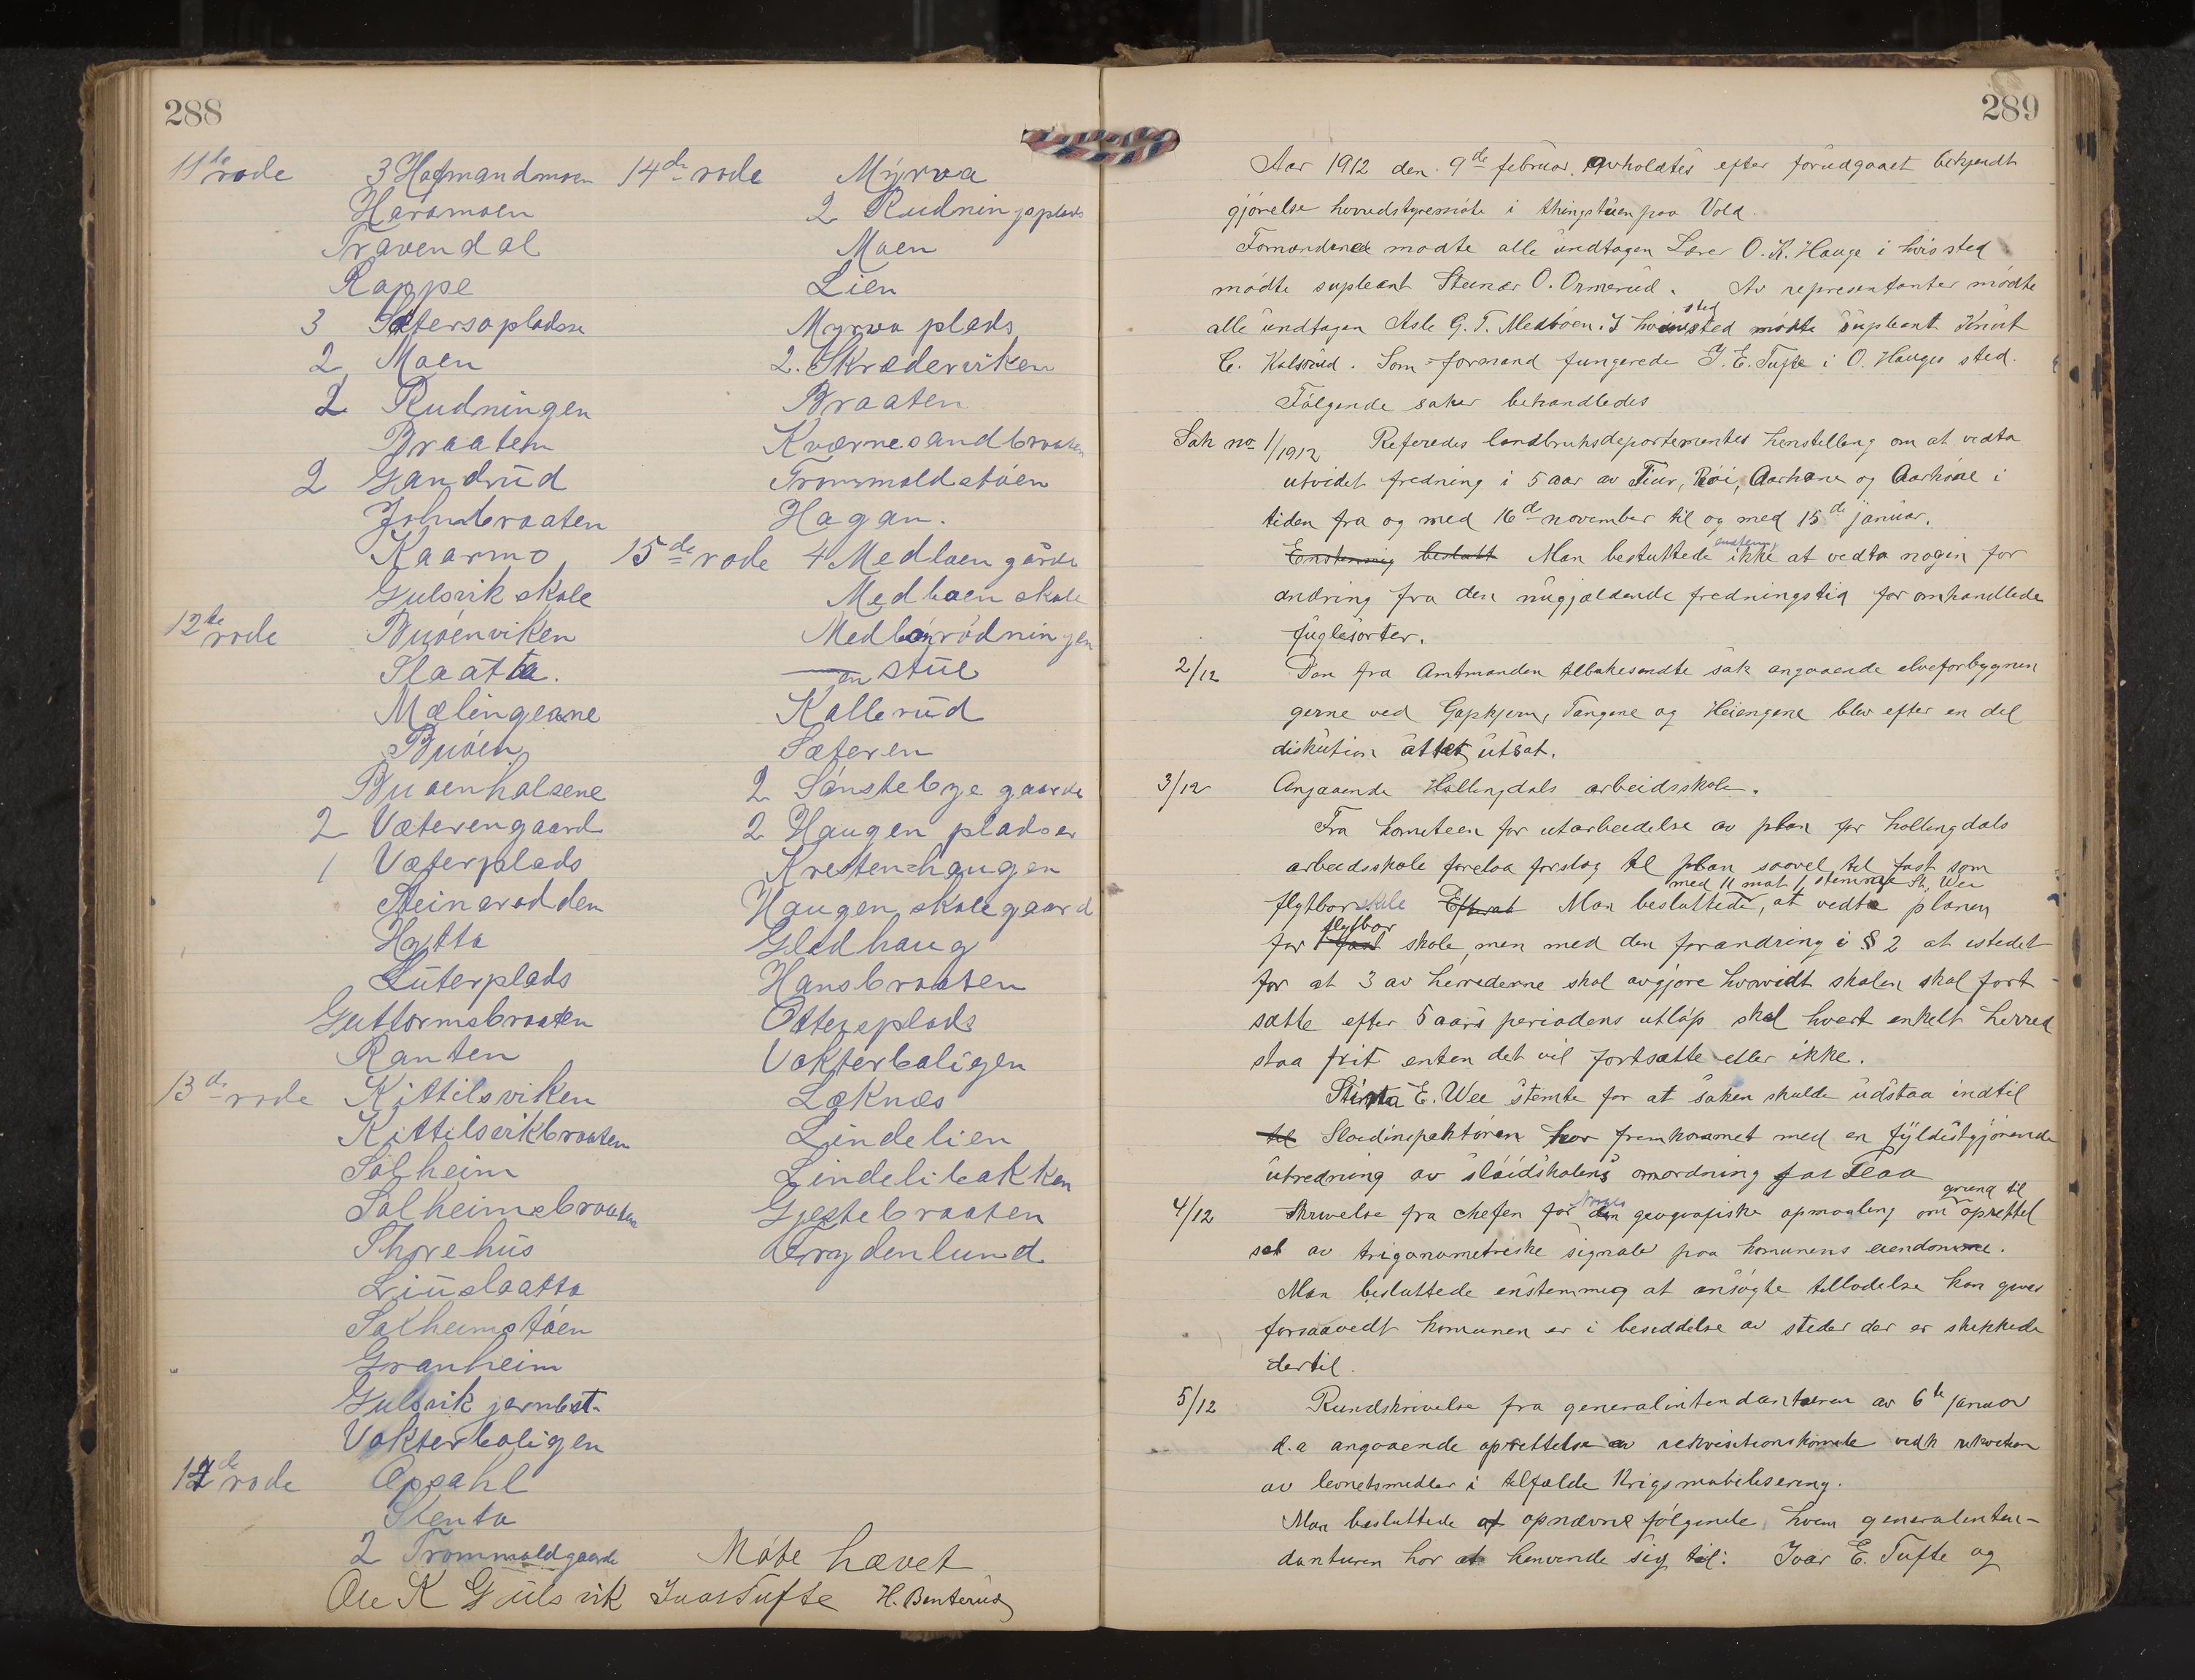 288
11te rode 3 Hafmandmoen
Haramoen
Travendal
Rappe
3 Sætersapladse
2 Moen
2 Rudningen
Braaten
2 Gandrud
Johnsbraaten
Kaarmo
Gulsvik skole
12te rode Buøenviken
Slaatta.
Mælingeane
Buøen
Buøenhalsene
2 Væterengaard
1 Væterplads
Steinerodden
Hytta
Luterplads
Guttormsbraaten
Ranten
13de rode Kittilsviken
Kittilsvikbraaten
Solheim
Solheimsbraaten
Thorehus
Liuslaatta
Solheimstøen
Granheim
Gulsvik jernbst.
Vokterboligen
14de rode Opsahl
Slenta
2 Trommaldgaarde
14de rode Myrva
2 Rudningsplads
Moen
Lien
Myrva plads
2. Skrædderviken
Braaten
Kværnesandbraaten
Trommaldstøen
Hagan.
15de rode 4 Medbøen gårde
Medbøen skole
Medbøyrødningen
— en stul
Kallerud
Sæteren
2 Sønstebye gaarde
2 Haugen pladser
Kresten=haugen
Haugen skolegaard
Gladhaug
Hansbraaten
Ottersplads
Vokterboligen
Læknæs
Lindelien
Lindelibakken
Gjestebraaten
Frydenlund
Møte hævet
Ole K Gulsvik Ivar Tufte H. Benterud
289
Aar 1912 den 9de februar avholdtes efter forudgaaet bekjendt
gjørelse herredstyremøte i thingstuen paa Vold.
Formændene mødte alle undtagen Lærer O. K. Hauge i hvis sted
mødte supleant Steinar O. Ormerud. Av representanter mødte
alle undtagen Asle G. T. Medbøen. I hvis sted mødte supleant Knut
C. Kolsrud. Som formand fungerede I. E. Tufte i O. Hauges sted.
Følgende saker behandledes
Sak no 1/1912 Referedes landbruksdepartementes henstelling om at vedta
utvidet fredning i 5 aar av Tiur, Røi, Aarhane og Aarhøne i
tiden fra og med 16de november til og med 15de januar.
Enstemmig beslutt Man besluttede enstemig ikke at vedta nogen for
andring fra den nugjældende fredningstid for omhandlede
fuglesorter.
2/12 Den fra Amtmanden tilbakesendte sak angaaende elveforbygnin
gerne ved Gapkjern, Tangene og Heiengene blev efter en del
diskution utsat.
3/12 Angaaende Hallingdals arbeidsskole.
Fra kometeen for utarbeidelse av plan for hallingdals
arbeidsskole forelaa forslag til plan saavel til fast som
flytbar skole Efterat Man besluttede med 11 mot 1 stemme St. Wee, at vedta planen
for fast flytbar skole, men med den forandring i § 2 at istedet
for at 3 av herrederne skal avgjøre hvorvidt skolen skal fort-
sætte efter 5 aars periodens utløp skal hvert enkelt herred
staa frit enten det vil fortsætte eller ikke.
E. Wee stemte for at saken skulde udstaa indtil
til Sloidinspektøren har fremkommet med en fyldestgjørende
utredning av sløidskolens omordning for Flaa
4/12 Skrivelse fra chefen for Norges geografiske opmaaling om grund til oprettel
sel av trigonometriske signaler paa komunens eiendomme.
Man besluttede enstemmig at ansøgte tilladelse kan gives
forsaavedt komunen er i besiddelse av steder der er skikkede
dertil.
5/12 Rundskrivelse fra generalintendanturen av 6te januar
d.a angaaende oprettelse av rekvisitionskomite vedk rekvition
av levnetsmedler i tilfælde Krigsmobilisering.
Man besluttede at opnævne følgende hvem generalinten-
danturen har at henvende sig til: Ivar E. Tufte og